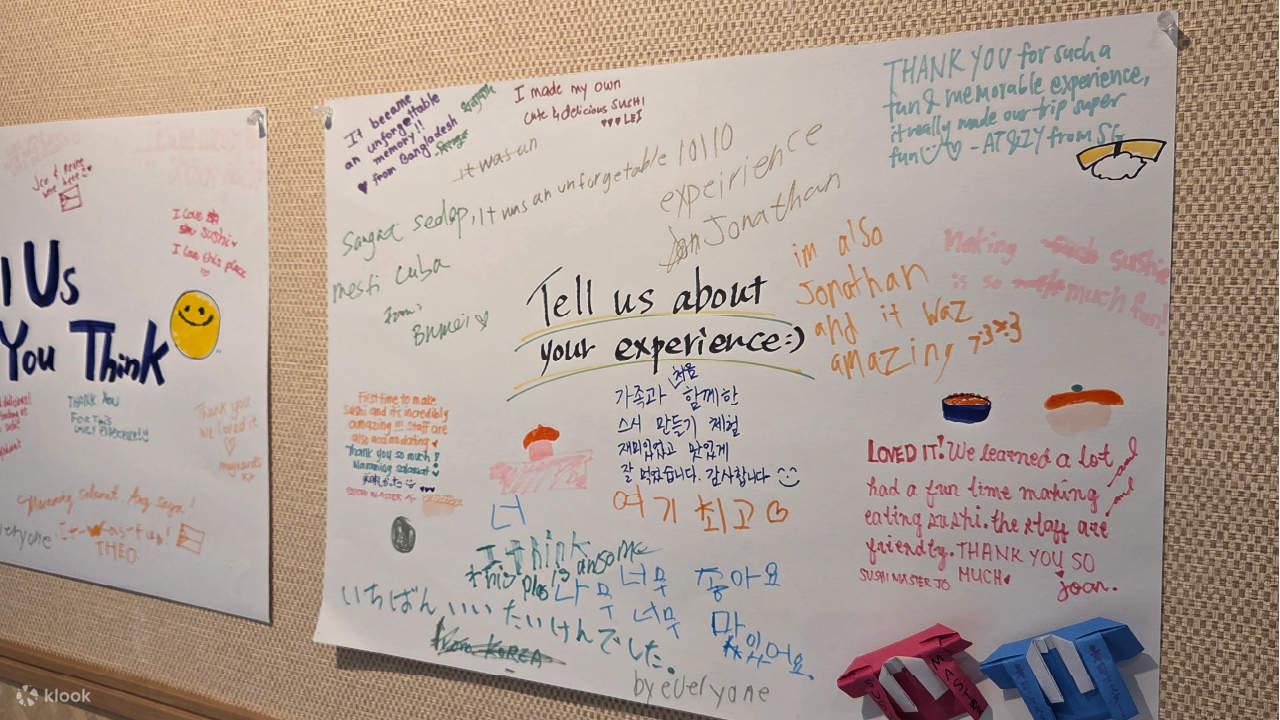 Joe & Irene
were here
I love
sushi
I love this place
l Us
You Think
THANK YOU
FOR THIS
Thank you
we loved it
Ang saya!
everyone
It was fun!
THEO
It became
an unforgettable
memory!!
from Bangladesh
I made my own
cute & delicious SUSHI
LEI
THANK YOU for such a
fun & memorable experience,
it really made our trip super
fun - AT & ZY from SG
it was an
Sangat sedap, it was an unforgetable 10110
expeirience
Jon Jonathan
mesti cuba
from
Brunei
Tell us about
your experience:)
im also
Jonathan
and it waz
amazing
Making such sushi
is so much fun!
처음
가족과 함께한
스시 만들기 체험
재미있었고 맛있게
잘 먹었습니다. 감사합니다
여기 최고
First time to make
sushi and it's incredibly
amazing!!! Staff are
also accomodating
Thank you so much!
Maraming salamat
SUSHI MASTER
LOVED IT! We learned a lot
and
had a fun time making
and
eating sushi. the staff are
friendly. THANK YOU SO
MUCH
SUSHI MASTER JO
joan.
너
I think
this ples is ansome
너무 좋아요
나무 너무 마
있어요.
いちばんいいたいけんでした。
from KOREA
by everyone
SU
MASTER
klook